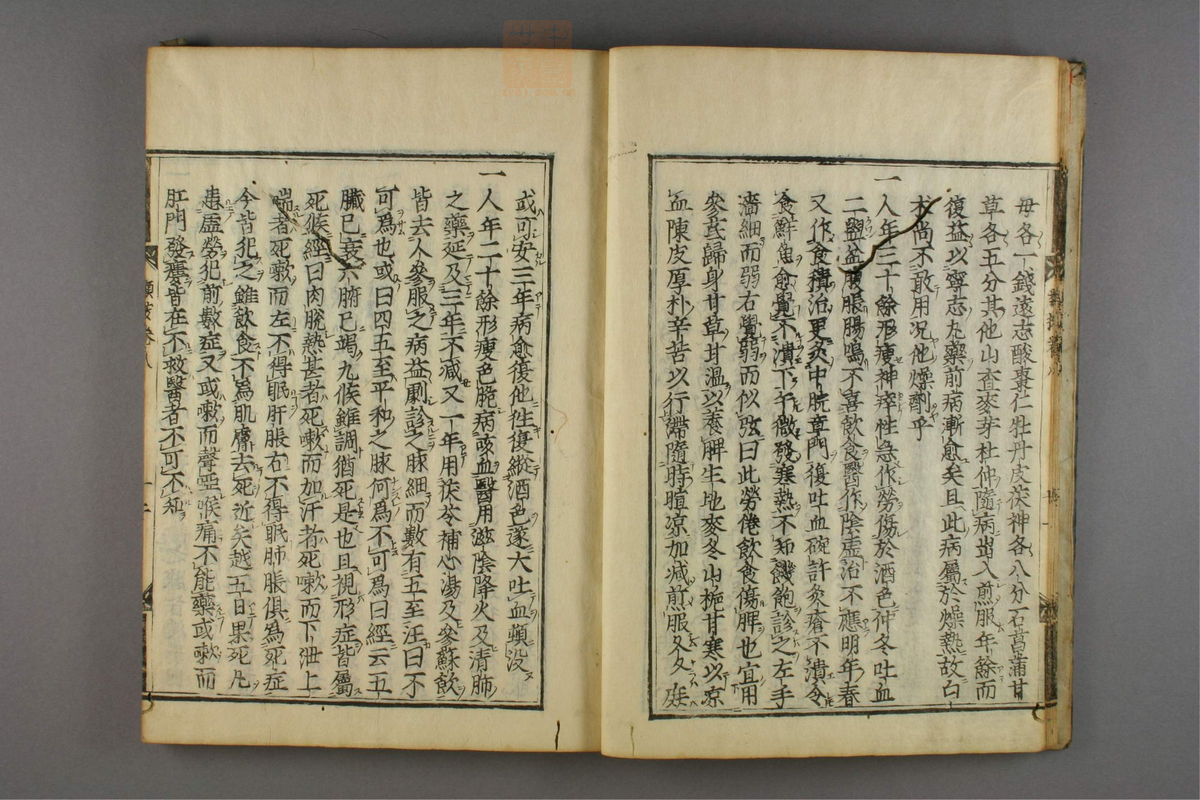 母各一錢遠志酸棗仁牡丹皮茯神各八分石菖蒲甘
草各五分其他山查麥芽杜仲隨病出入煎服年餘而
復益以寧志九藥前病漸愈矣且此病屬於燥熱故白
朮尚不敢用况他燥劑乎
一人年三十餘形瘦神瘁性急作勞傷於酒色仲冬吐血
二盌腹脹腸鳴不喜飲食醫作陰虛治不應明年春
又作食積治更灸中脘章門復吐血碗許灸瘡不潰令
食鮮魚愈覺不潰下午微發寒熱不知饑飽診之左手
濇細而弱右覺弱而似弦曰此勞倦飲食傷脾也宜用
參芪歸身甘草甘溫以養脾生地麥冬山梔甘寒以凉
血陳皮厚朴辛苦以行滯隨時暄凉加减煎服久久庶
或可安三年病愈復他徃復縱酒色遂大吐血頓没
一人年二十餘形瘦色脆病咳血醫用滋陰降火及清肺
之藥延及三年不减又一年用茯苓補心湯及參蘇飲
皆去人參服之病益劇診之脉細而數有五至汪曰不
可爲也或曰四五至平和之脉何爲不可爲曰經云五
臟已衰六腑已竭九候雖調猶死是也且視形症皆屬
死候經曰肉脫熱甚者死嗽而加汗者死嗽而下泄上
喘者死嗽而左不得眠肝脹右不得眠肺脹俱爲死症
今皆犯之雖飲食不爲肌膚去死近矣越五日果死凡
患虛勞犯前數症又或嗽而聲啞喉痛不能藥或嗽而
肛門發癰皆在不救醫者不可不知